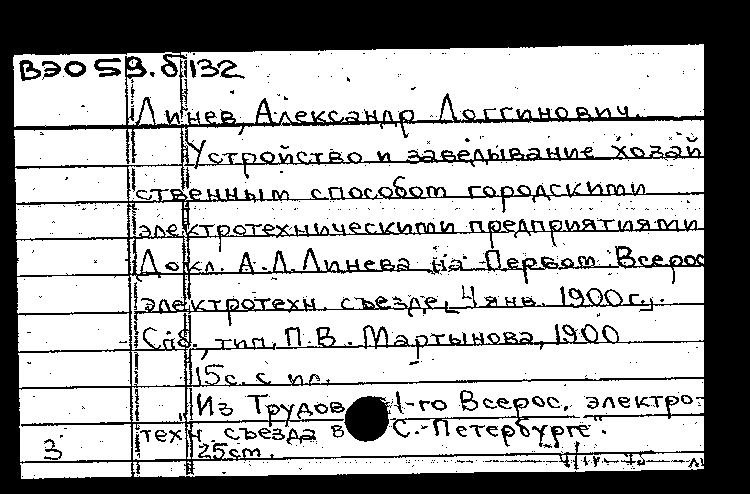 ВЭО 59.б/132
Линев, Александр Логгинович.
Устройство и заведывание хозяй
ственным способом городскими
электротехническими предприятиями
Докл. А.Л. Линева на Первом Всерос
электротехн. съезде, 4 янв. 1900 г.
Спб., тип. П.В. Мартынова, 1900
15с. с ил.
„Из Трудов 1-го Всерос. электро-
техн. съезда в С.-Петербурге".
3 25cm.